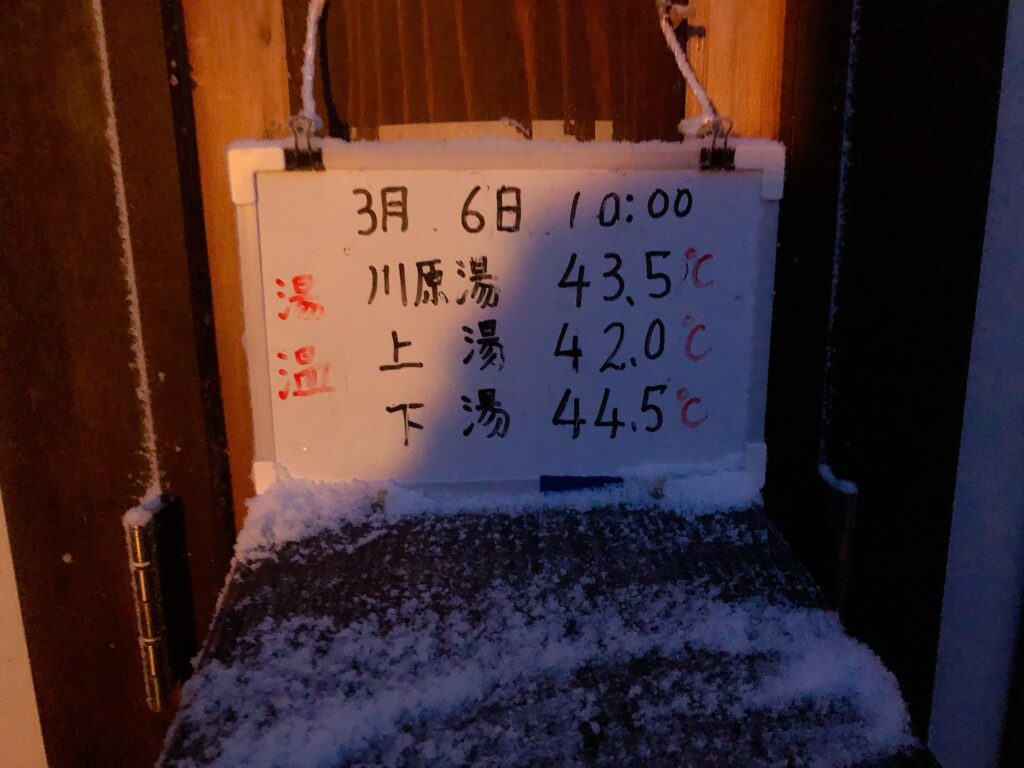 3月 6日 10:00
湯温
川原湯 43.5℃
上湯 42.0℃
下湯 44.5℃